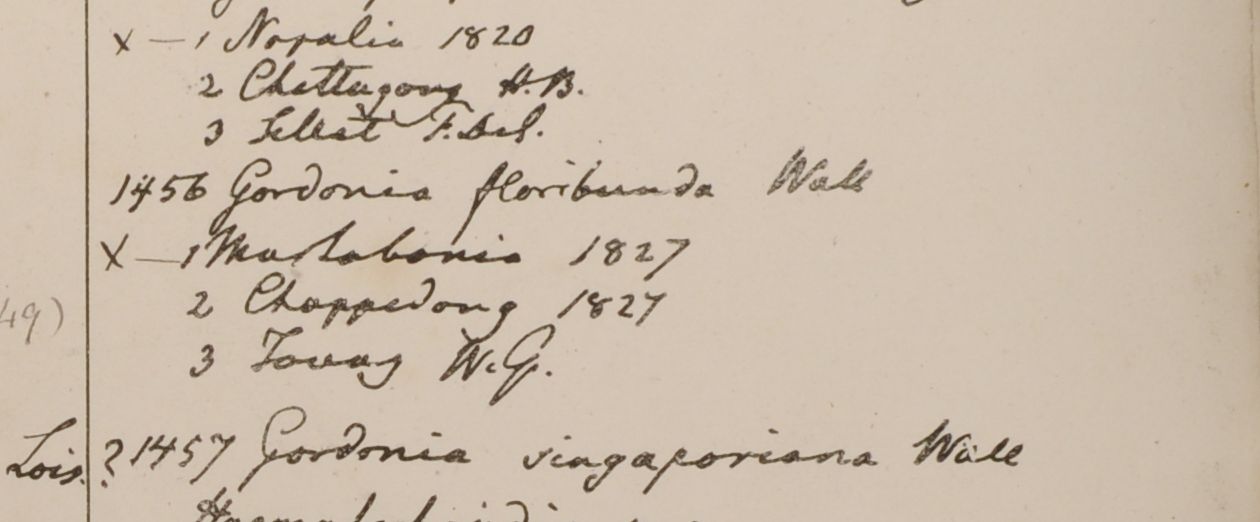 x — 1 Napalia 1820
2 Chittagong H.B.
3 Sillet F. de S.
1456 Gordonia floribunda Wall
X — 1 Martabania 1827
2 Chappedong 1827
49)
3 Tavoy W.G.
Lois. ? 1457 Gordonia singaporiana Wall